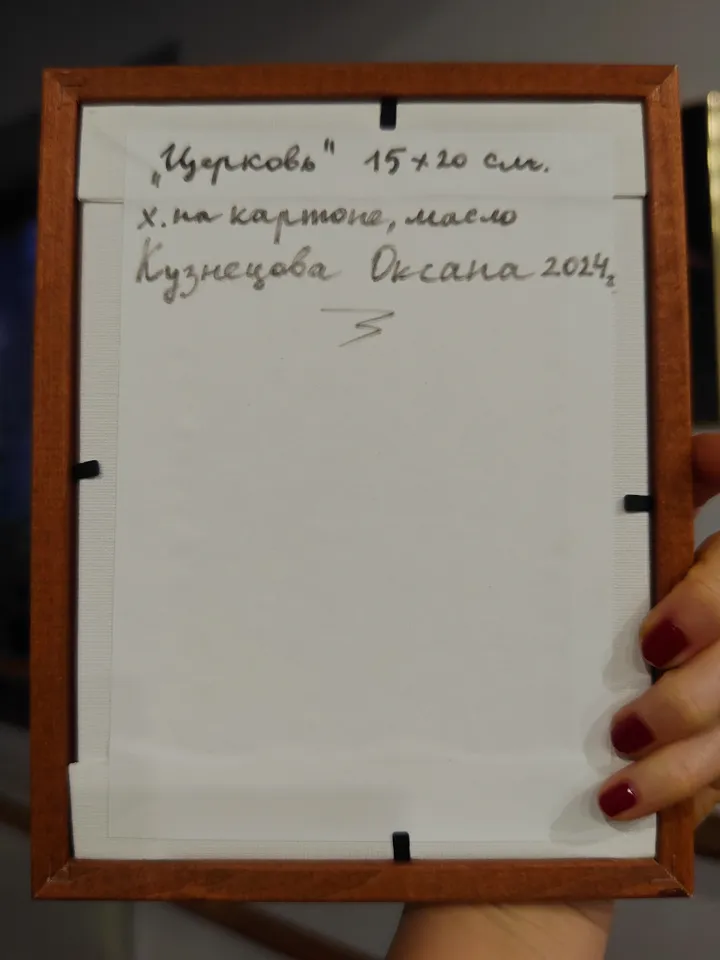 „Церковь" 15×20 см.
х. на картоне, масло
Кузнецова Оксана 2024г.